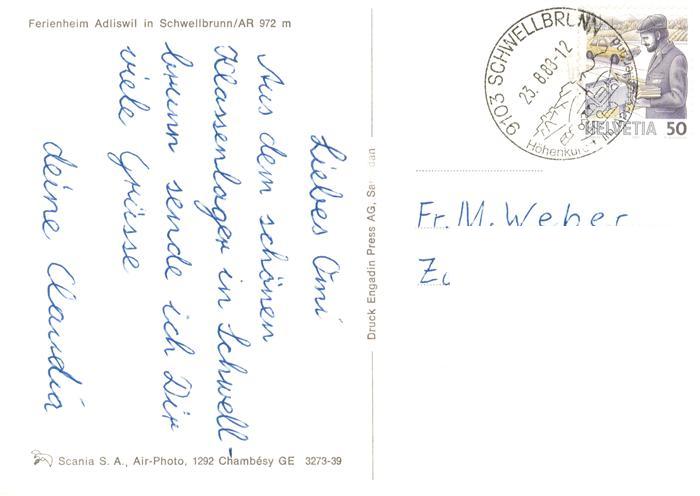 Ferienheim Adliswil in Schwellbrunn/AR 972 m
Liebes Omi
Aus dem schönen
Klassenlager in Schwell-
brunn sende ich Dir
viele Grüsse
deine Claudia
Scania S. A., Air-Photo, 1292 Chambésy GE 3273-39
Druck Engadin Press AG,
9103 SCHWELLBRUNN
23.8.88-12
Höhenkur
HELVETIA 50
Fr. M. Weber